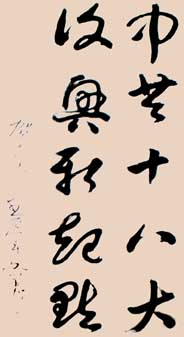 中共十八大
復興新起點